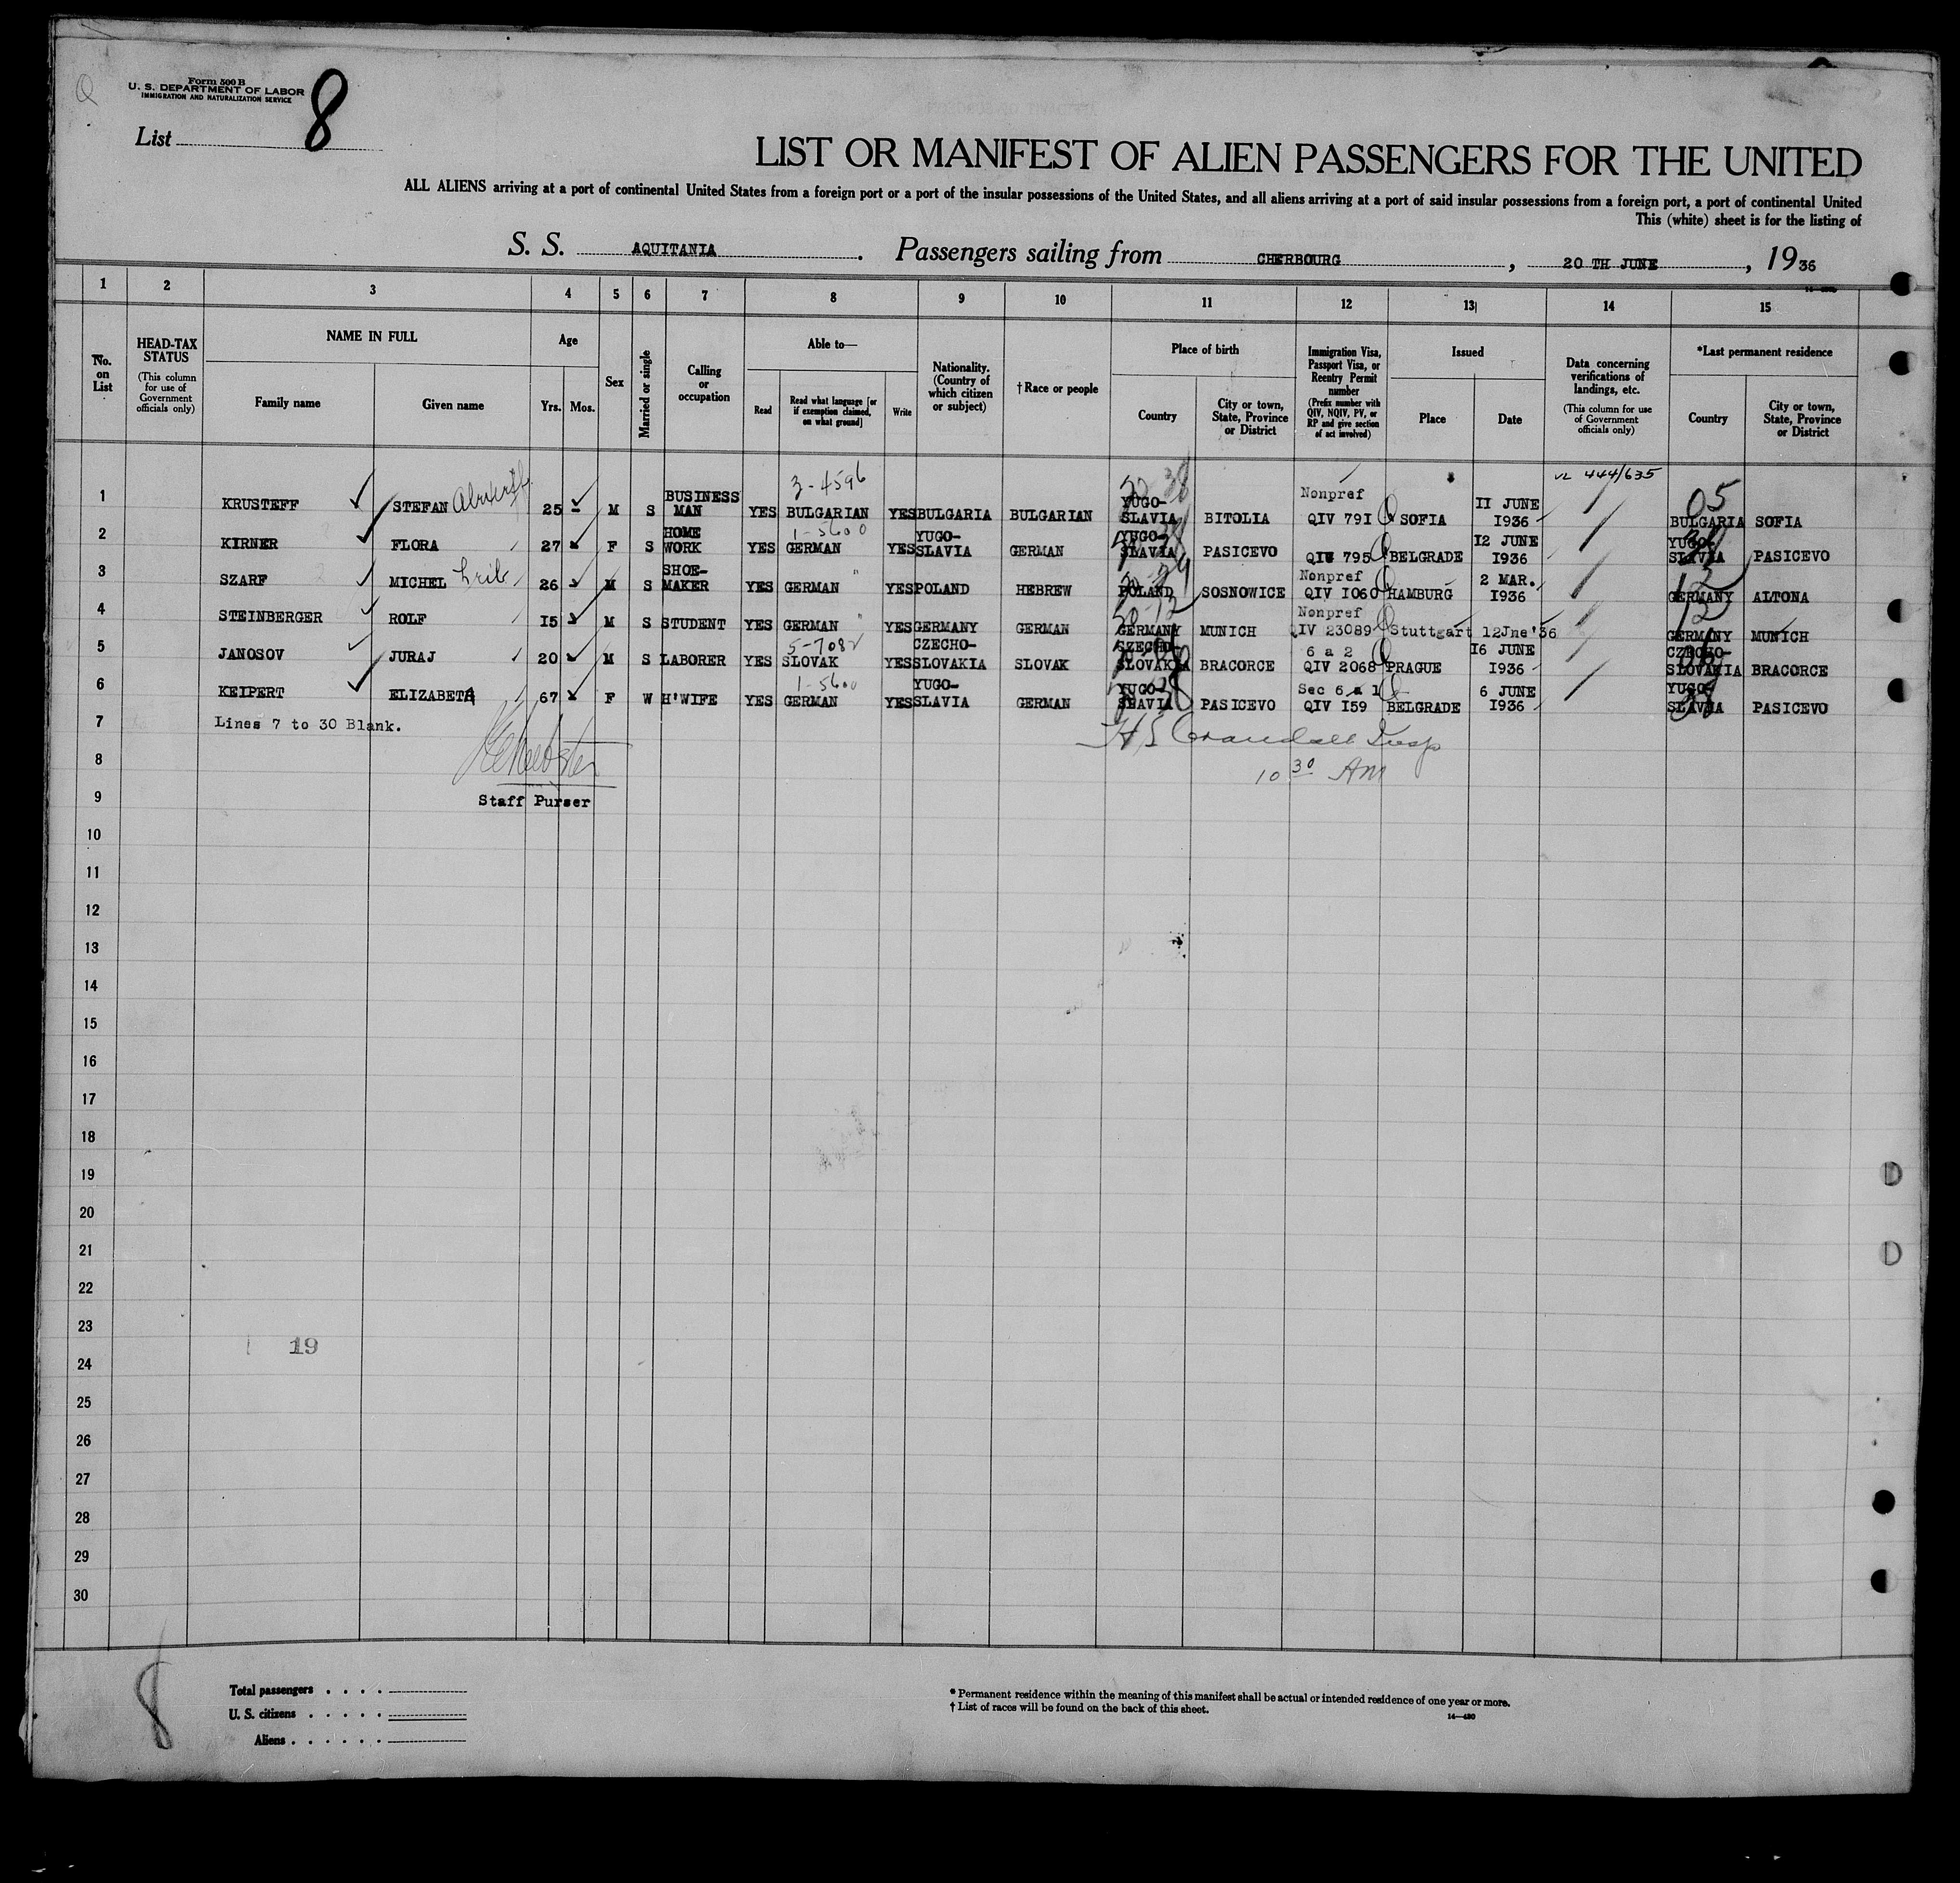 Form 500 B
U. S. DEPARTMENT OF LABOR
IMMIGRATION AND NATURALIZATION SERVICE
List 8
LIST OR MANIFEST OF ALIEN PASSENGERS FOR THE UNITED
ALL ALIENS arriving at a port of continental United States from a foreign port or a port of the insular possessions of the United States, and all aliens arriving at a port of said insular possessions from a foreign port, a port of continental United
This (white) sheet is for the listing of
S. S. AQUITANIA. Passengers sailing from CHERBOURG, 20 TH JUNE, 1936
1 2 3 4 5 6 7 8 9 10 11 12 13 14 15
No. on List
HEAD-TAX STATUS (This column for use of Government officials only)
NAME IN FULL
Family name Given name
Age
Yrs. Mos.
Sex
Married or single
Calling or occupation
Able to—
Read Read what language [or if exemption claimed, on what ground] Write
Nationality. (Country of which citizen or subject)
† Race or people
Place of birth
Country City or town, State, Province or District
Immigration Visa, Passport Visa, or Reentry Permit number (Prefix number with QIV, NQIV, PV, or RP and give section of act involved)
Issued
Place Date
Data concerning verifications of landings, etc. (This column for use of Government officials only)
*Last permanent residence
Country City or town, State, Province or District
3-4596 444/635
1 KRUSTEFF STEFAN 25 M S BUSINESS MAN YES BULGARIAN YES BULGARIA BULGARIAN YUGO-SLAVIA BITOLIA Nonpref QIV 791 SOFIA 11 JUNE 1936 05 BULGARIA SOFIA
1-5600
2 KIRNER FLORA 27 F S HOME WORK YES GERMAN YES YUGO-SLAVIA GERMAN YUGO-SLAVIA PASICEVO QIV 795 BELGRADE 12 JUNE 1936 YUGO-SLAVIA PASICEVO
3 SZARF MICHEL 26 M S SHOE-MAKER YES GERMAN " YES POLAND HEBREW POLAND SOSNOWICE Nonpref QIV 1060 HAMBURG 2 MAR. 1936 GERMANY ALTONA
4 STEINBERGER ROLF 15 M S STUDENT YES GERMAN " YES GERMANY GERMAN GERMANY MUNICH Nonpref QIV 23089 Stuttgart 12Jne'36 GERMANY MUNICH
5-7082
5 JANOSOV JURAJ 20 M S LABORER YES SLOVAK YES CZECHO-SLOVAKIA SLOVAK CZECHO-SLOVAKIA BRACORCE 6 a 2 QIV 2068 PRAGUE 16 JUNE 1936 CZECHO-SLOVAKIA BRACORCE
1-5600
6 KEIPERT ELIZABETA 67 F W H'WIFE YES GERMAN YES YUGO-SLAVIA GERMAN YUGO-SLAVIA PASICEVO Sec 6 a 1 QIV 159 BELGRADE 6 JUNE 1936 YUGO-SLAVIA PASICEVO
7 Lines 7 to 30 Blank.
H S Crandall Insp
8 10 30 AM
9 Staff Purser
10
11
12
13
14
15
16
17
18
19
20
21
22
23
19
24
25
26
27
28
29
30
8
Total passengers . . . .
U. S. citizens . . . . .
Aliens . . . . . .
* Permanent residence within the meaning of this manifest shall be actual or intended residence of one year or more.
† List of races will be found on the back of this sheet.
14—430